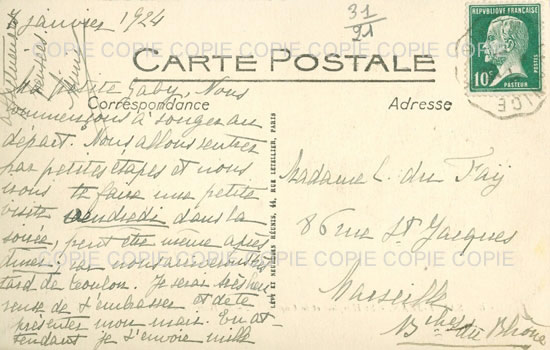 8 janvier 1924
31
21
RÉPUBLIQUE FRANÇAISE
10c
POSTES
PASTEUR
COPIE COPIE COPIE COPIE COPIE COPIE
CARTE POSTALE
Correspondance
Adresse
Ma petite Gaby, Nous
commençons à songer au
départ. Nous allons rentrer
par petites étapes et nous
irons te faire une petite
visite vendredi dans la
soirée, peut être même après
diner, car nous arriverons
tard de Toulon. Je serai très heu
reuse de t'embrasser et de te
présenter mon mari. En at
tendant je t'envoie mille
LEVY ET NEURDEIN RÉUNIS, 44, RUE LETELLIER, PARIS
Madame C. du Faÿ
86 rue St Jacques
Marseille
Bches du Rhône